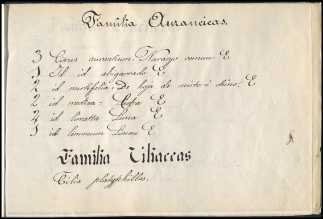 Familia Auranceas.
3 Citrus aurantium: Naranjo comun E
1 Id id abigarado E
2 id mirtifolia: De hoja de mirto ó Chino. E
2 id medica: Cidra E
4 id limetta Lima E
1 id limonum Limon E
Familia Tiliaceas
Tilia platyphillos.